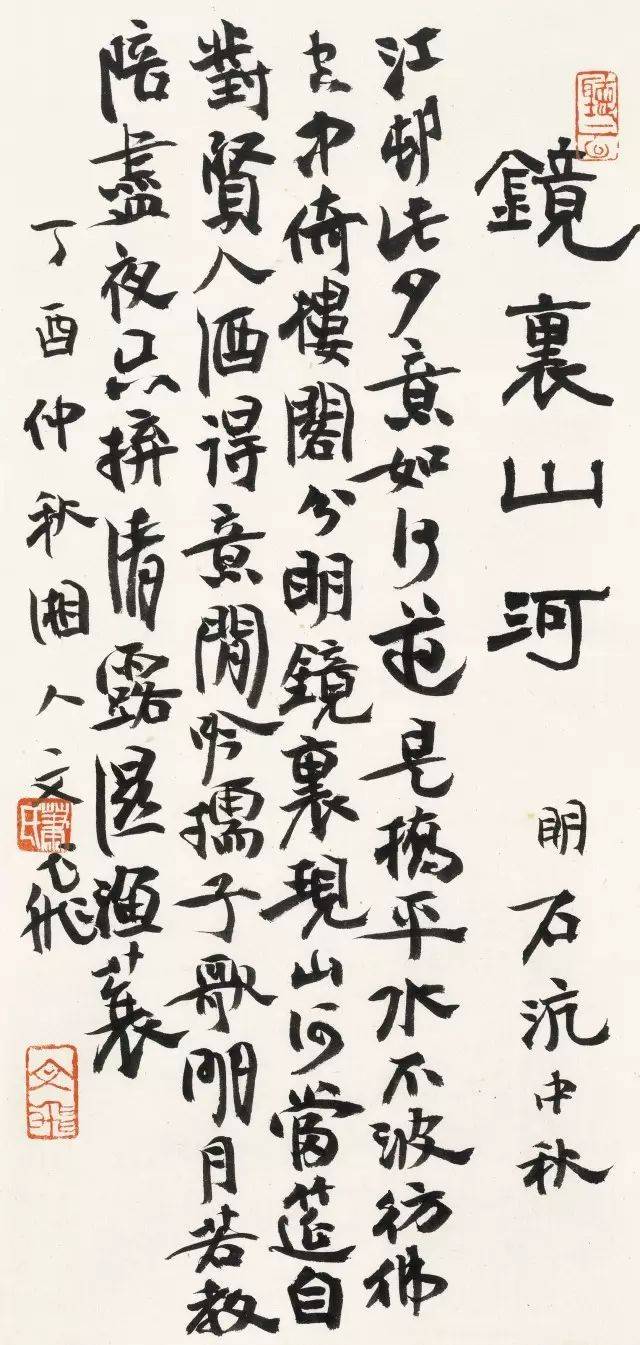 鏡裏山河
明石沆中秋
江邨此夕意如何道是橋平水不波彷彿
空中倚樓閣分明鏡裏現山河當筵自
對賢人酒得意閒吟孺子歌明月若教
陪盡夜只拚清露溼漁蓑
丁酉仲秋湘人文飛
蕭氏
文飛